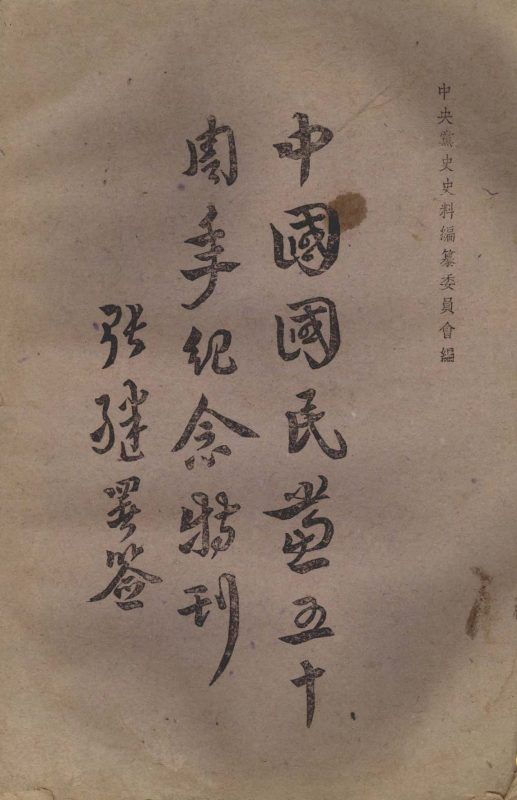 中央黨史史料編纂委員會編
中國國民黨五十
周年紀念特刊
张继署签